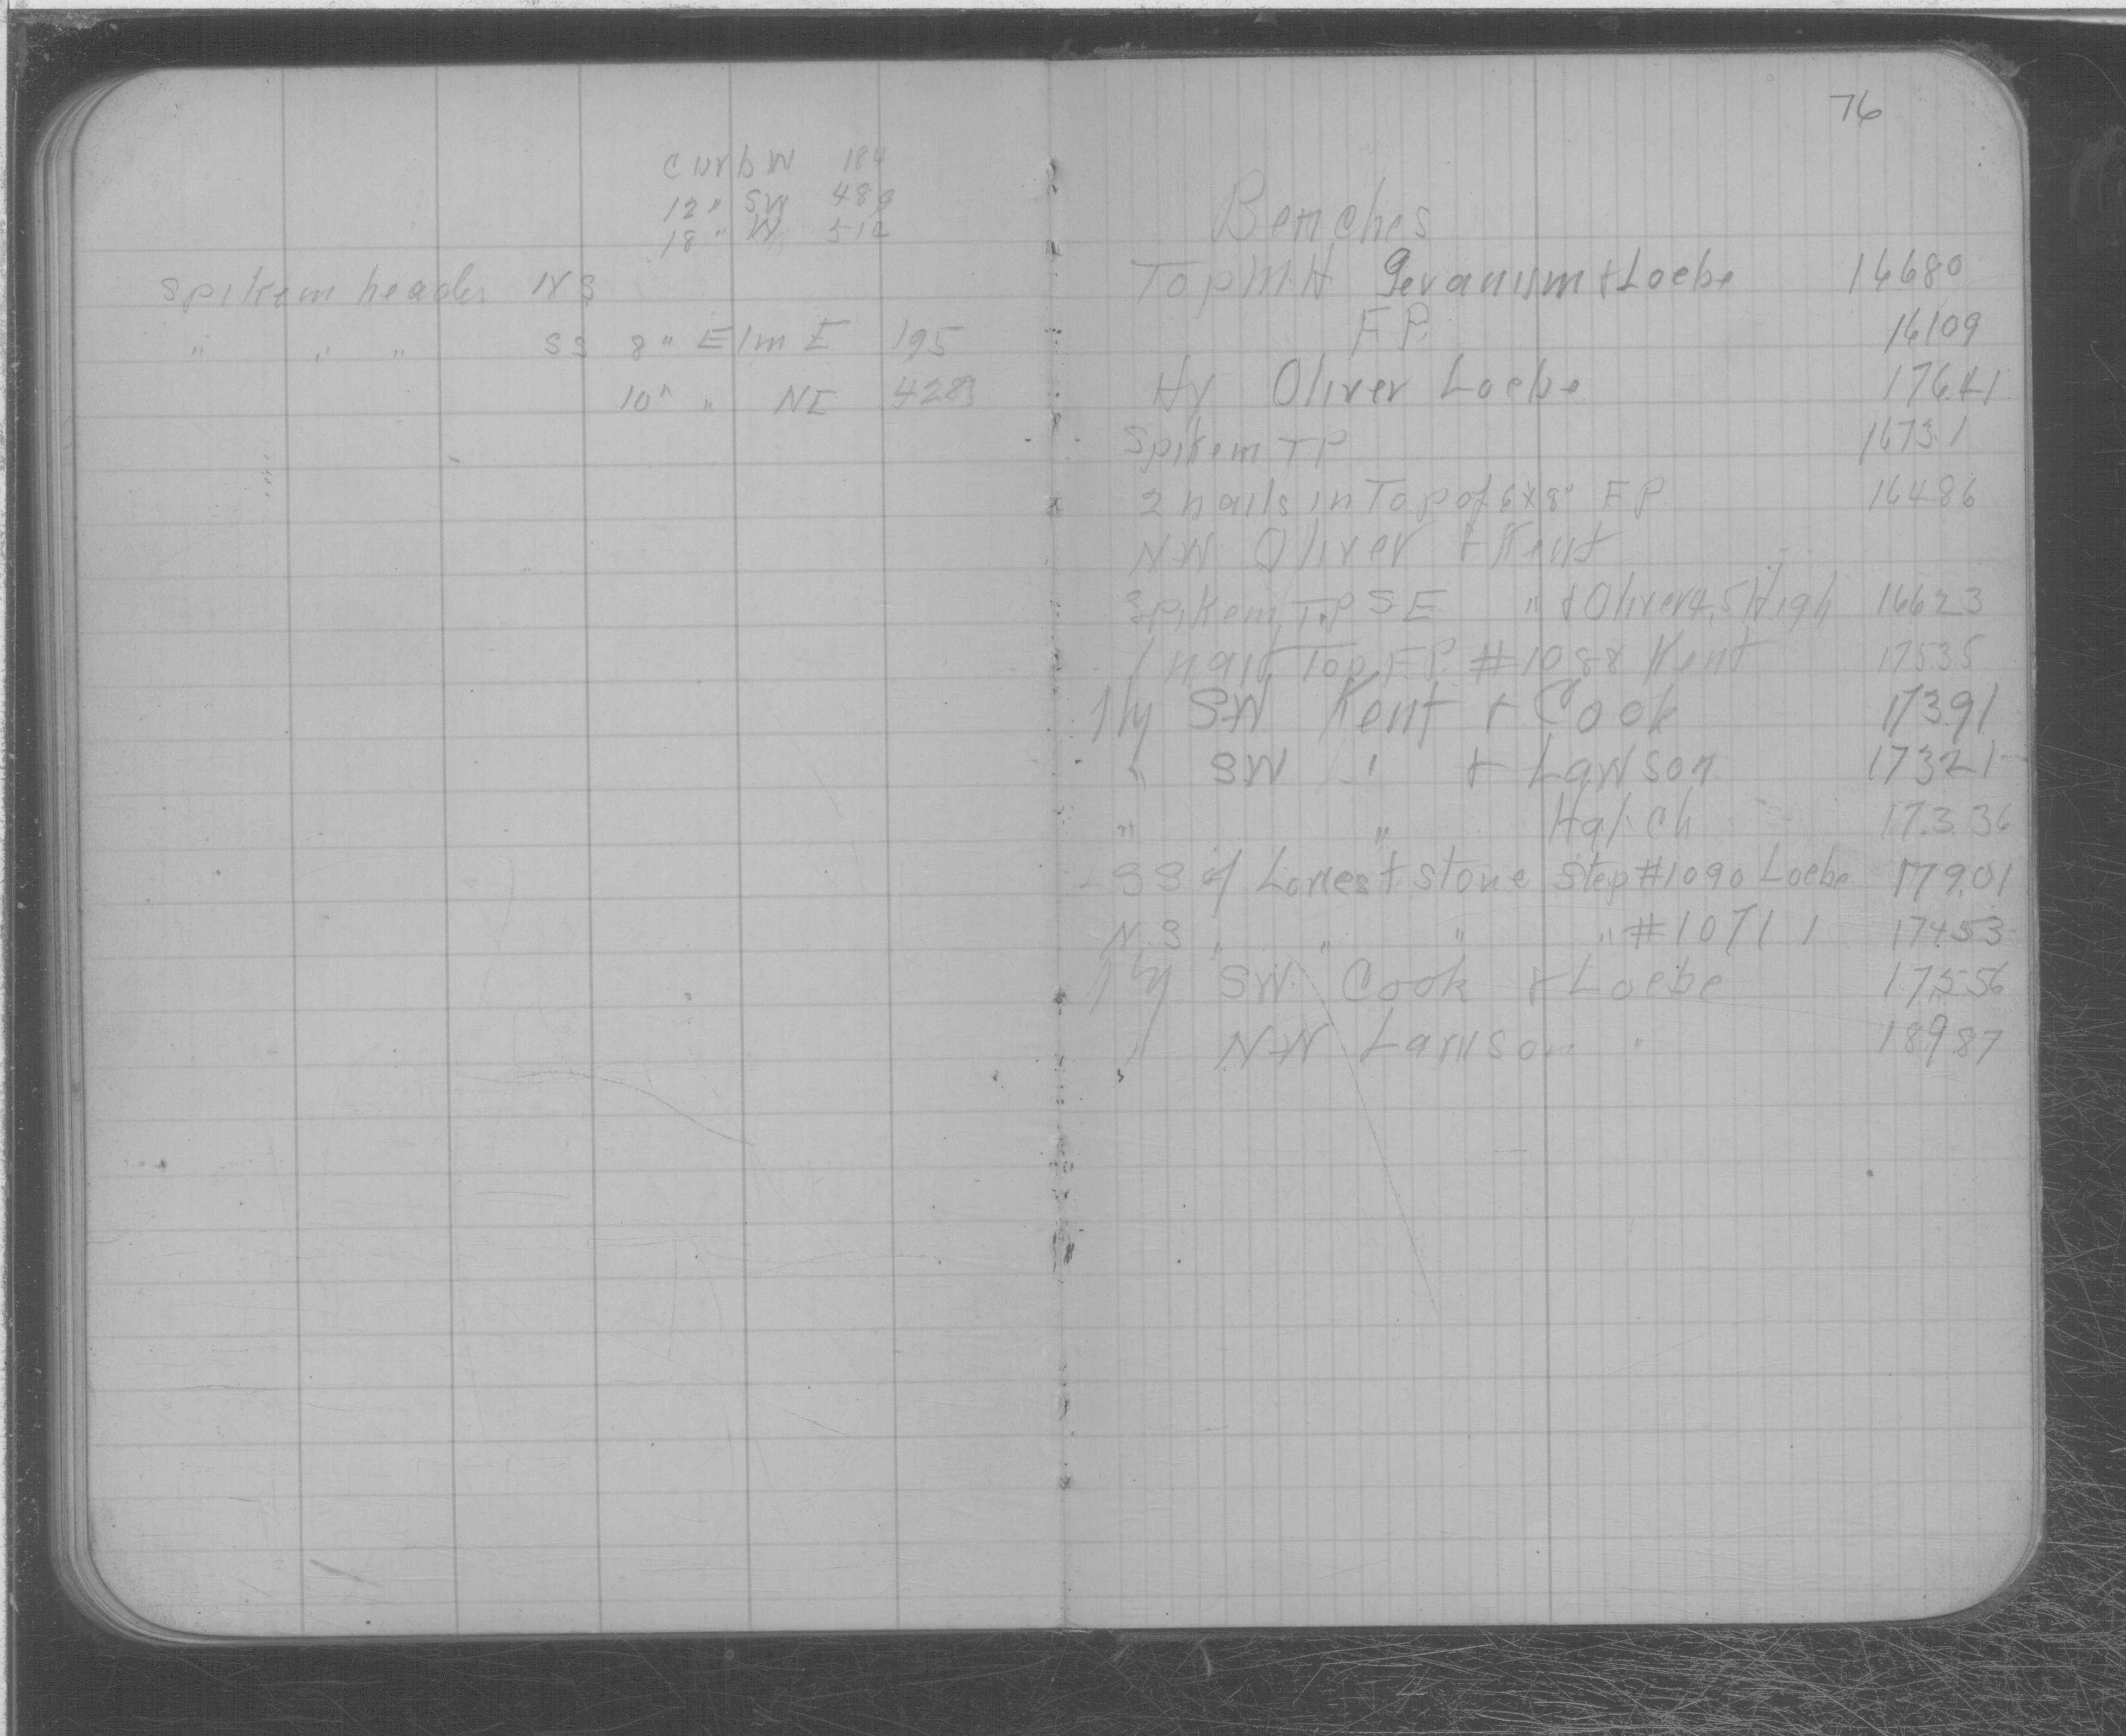 Curb W 184
12" SW 489
18" W 512
Spike in header NS
" " " SS 8" Elm E 195
10" " NE 428
76
Benches
Top MH Geranium & Loebe 16680
F.P. 16109
Hy Oliver Loebe 176.41
Spike in TP 1673.1
2 nails in Top of 6x8" FP 16486
NW Oliver & Kent
Spike in T.P SE " & Oliver 4.5 High 16623
1 nail Top F.P. #1088 Kent 175.35
Hy SW Kent & Cook 17391
" SW " & Lawson 17321
" " Hatch 173.36
SS of Lowest stone Step #1090 Loebe 179.01
N.S " " " " #1071 17453
Hy SW Cook & Loebe 175.56
" NW Lawson " 18987